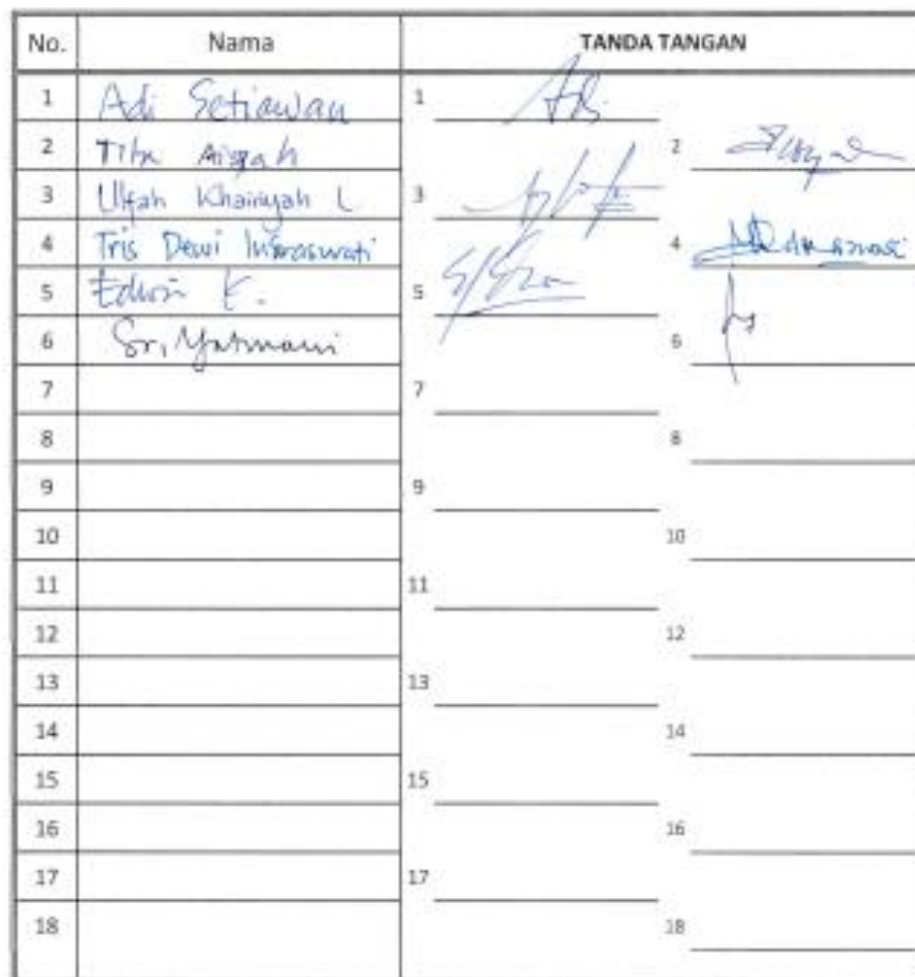 No. Nama TANDA TANGAN
1 Adi Setiawan 1
2 Aisyah 2
3 Ulfah Khairiyah L 3
4 Tris Dewi 4
5 Edwin K. 5
6 Sri Yatmani 6
7 7
8 8
9 9
10 10
11 11
12 12
13 13
14 14
15 15
16 16
17 17
18 18